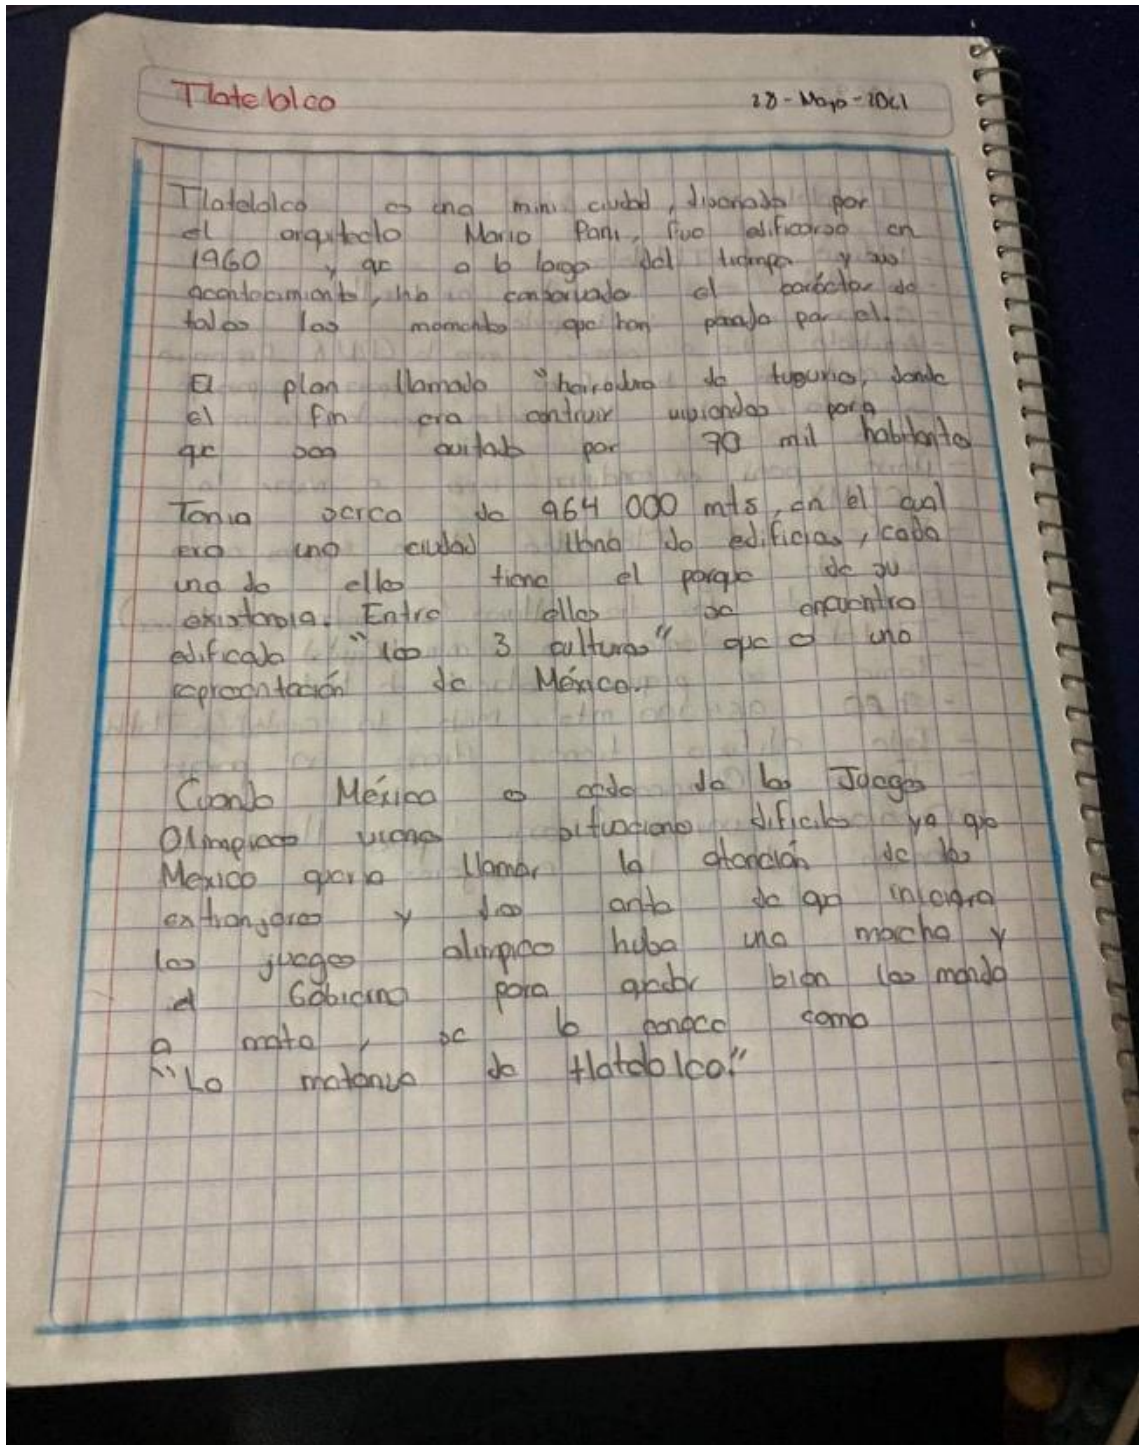 Tlatelolco 28-Mayo-2021
Tlatelolco es una mini ciudad, diseñada por
el arquitecto Mario Pani, fue edificarse en
1960 y qe a lo largo del tiempo y sus
acontecimiento, ha conservado el carácter de
todos los momentos que han pasado por el.
El plan llamado "herradura de tugurios, donde
el fin era contruir viviendas para
qe sean por 70 mil habitantes
Tenia cerca de 964 000 mts, en el cual
era una ciudad llena de edificios, cada
uno de ellos tiene el porque de su
existencia. Entre ellos se encuentra
edificado "las 3 culturas" que es una
representación de México.
Cuando México es sede de los Juegos
Olimpicos viene situaciones dificiles ya qe
Mexico queria llamar la atención de los
extranjeros y dias antes de qe iniciara
los juegos olimpico hubo una marcha y
el Gobierno para quedar bien los mando
a mata, se lo conoce como
"La matanza de tlatelolco."